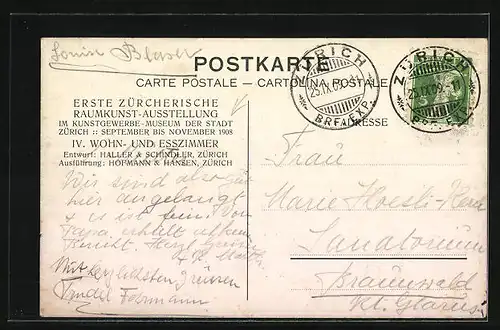 Louise Blaser
POSTKARTE
CARTE POSTALE — CARTOLINA POSTALE
ZÜRICH
25.IX.09.
BRF. EXP.
ZÜRICH
25.IX.09.
BRF. EXP.
ERSTE ZÜRCHERISCHE
RAUMKUNST-AUSSTELLUNG
IM KUNSTGEWERBE-MUSEUM DER STADT
ZÜRICH :: SEPTEMBER BIS NOVEMBER 1908
IV. WOHN- UND ESSZIMMER
Entwurf: HALLER & SCHINDLER, ZÜRICH
Ausführung: HOFMANN & HANSEN, ZÜRICH
ADRESSE
Wir sind also gut
hier angelangt
& es ist fein. Von
Papa erhielt
Mit herzlichsten Grüssen
Frau
Marie
Sanatorium
Braunwald
Kt. Glarus